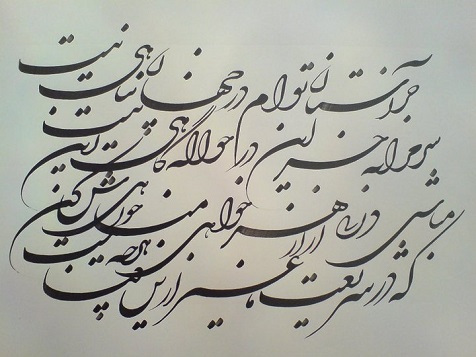 جز آستان توام در جهان پناهی نیست
سر مرا بجز این در حواله گاهی نیست
مباش در پی آزار و هر چه خواهی کن
که در شریعت ما غیر از این گناهی نیست